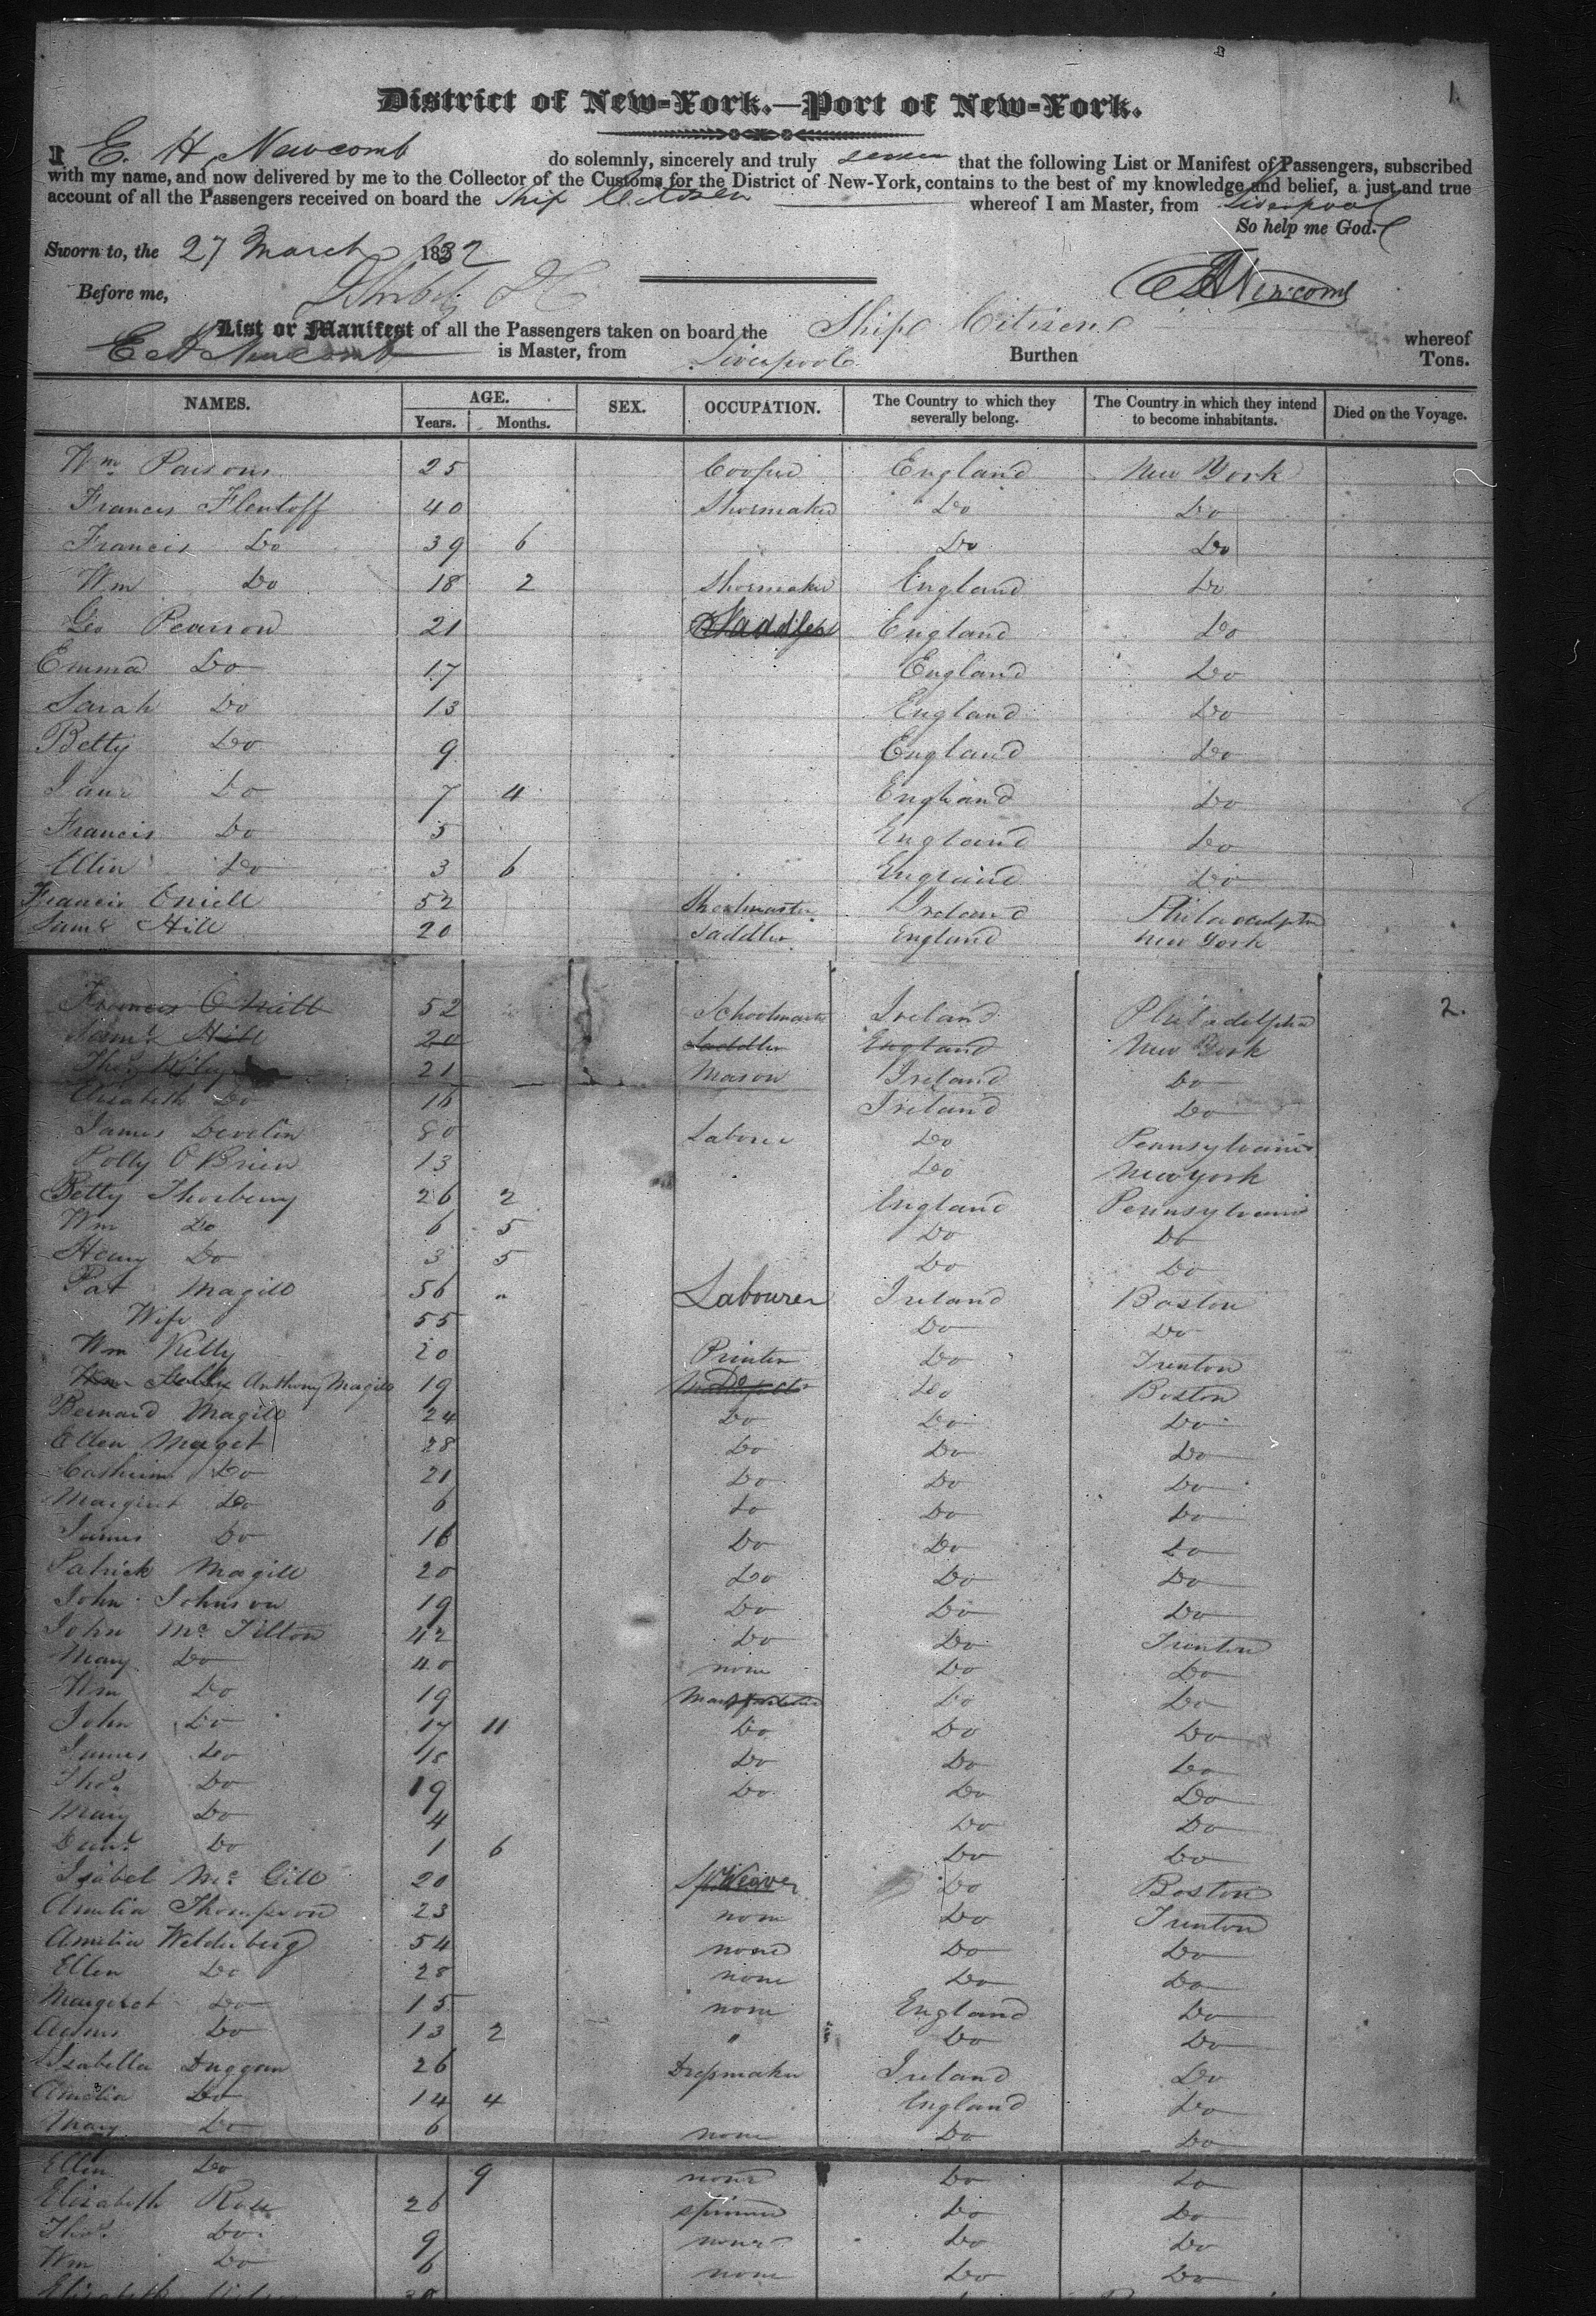 1.
District of New-York.—Port of New-York.
I E. H. Newcomb do solemnly, sincerely and truly that the following List or Manifest of Passengers, subscribed
with my name, and now delivered by me to the Collector of the Customs for the District of New-York, contains to the best of my knowledge and belief, a just and true
account of all the Passengers received on board the Ship Citizen whereof I am Master, from Liverpool
So help me God.
Sworn to, the 27 March 1832
Before me,
E H Newcomb
List or Manifest of all the Passengers taken on board the Ship Citizen whereof
E H Newcomb is Master, from Liverpool Burthen Tons.
NAMES. AGE. SEX. OCCUPATION. The Country to which they severally belong. The Country in which they intend to become inhabitants. Died on the Voyage.
Years. Months.
Wm Parsons 25 Cooper England New York
Francis Flentoff 40 Shoemaker Do Do
Francis Do 39 6 Do Do
Wm Do 18 2 Shoemaker England Do
Geo Pearson 21 Saddler England Do
Emma Do 17 England Do
Sarah Do 13 England Do
Betty Do 9 England Do
Jane Do 7 4 England Do
Francis Do 5 England Do
Ellin Do 3 6 England Do
Francis Oniell 52 Ireland Philadelphia
Saml Hill 20 Saddler England New York
2.
Francis O Niell 52 Schoolmaster Ireland Philadelphia
Saml Hill 20 Saddler England New York
Thos Riley 21 Mason Ireland Do
Elisabeth Do 16 Ireland Do
James Develin Laborer Do Pennsylvania
Polly O Brien 13 Do New York
Betty Thorberry 26 2 England Pennsylvania
Wm Do 6 5 Do Do
Henry Do 3 5 Do Do
Pat Magill 56 " Labourer Ireland Boston
Wife 55 Do Do
Wm Kelly 20 Printer Do Trenton
Anthony Magill 19 Do Do Boston
Bernard Magill 24 Do Do Do
Ellen Maget 28 Do Do Do
Do 21 Do Do Do
Margret Do 6 Do Do Do
James Do 16 Do Do Do
Patrick Magill 20 Do Do Do
John Johnson 19 Do Do Do
John Mc Tilton 42 Do Do Trenton
Mary Do 40 none Do Do
Wm Do 19 Do Do
John Do 17 11 Do Do Do
James Do Do Do Do
Thos Do 19 Do Do Do
Mary Do 4 Do Do
Do 1 6 Do Do
Isabel Mc Gill 20 Weaver Do Boston
Amelia Thompson 23 none Do Trenton
Amelia Welderberg 54 none Do Do
Ellen Do 28 none Do Do
Margret Do 15 none England Do
Do 13 2 " Do Do
Isabella Duggan 26 Dressmaker Ireland Do
Amelia Do 14 4 England Do
Mary Do 6 none Do Do
Ellen Do 9 none Do Do
Elisabeth Rose 26 spinner Do Do
Thos Do 9 none Do Do
Wm Do 6 none Do Do
Elisabeth